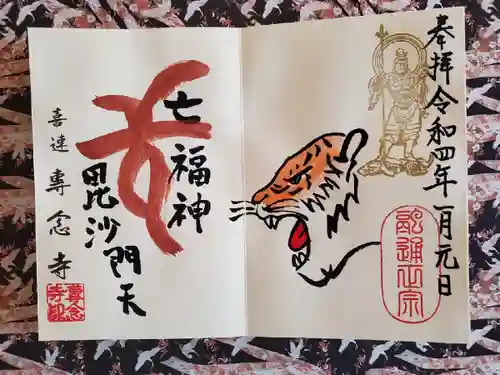 奉拝 令和四年一月元日
融通正宗
七福神
毘沙門天
喜連 專念寺
專念寺印